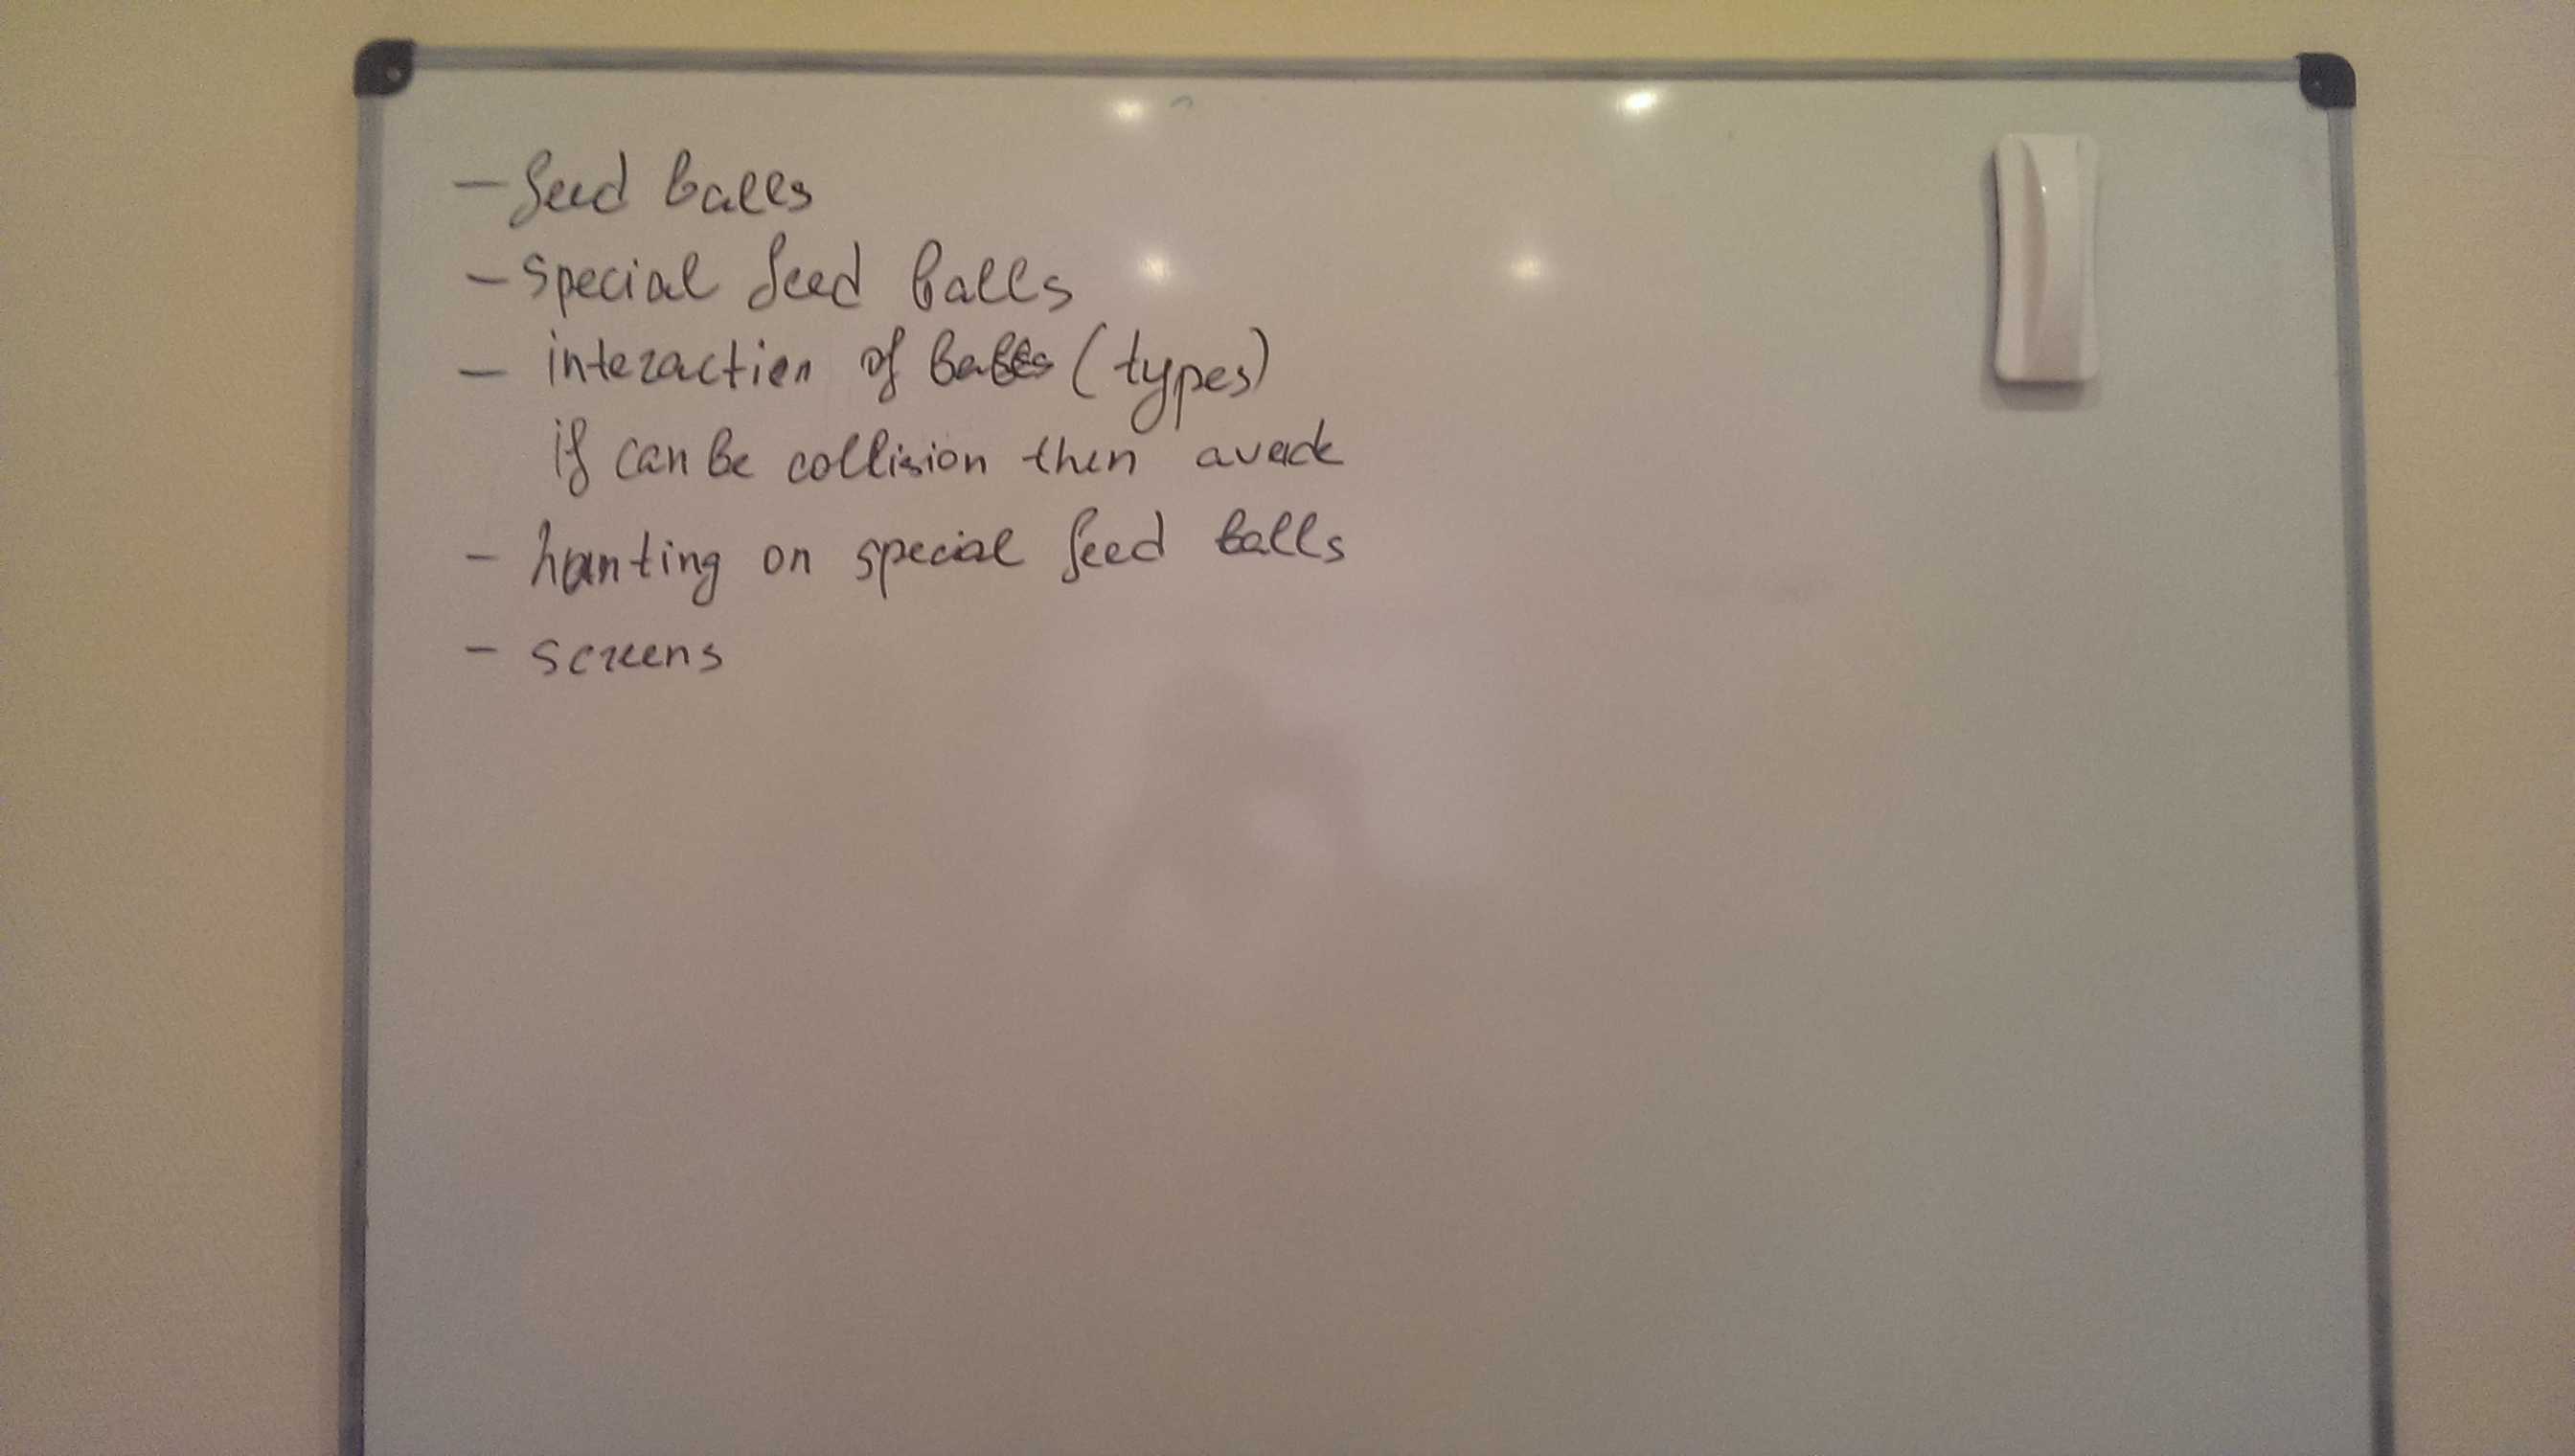 - feed balls
- special feed balls
- interaction of balls (types)
if can be collision then
- hunting on special feed balls
- screens